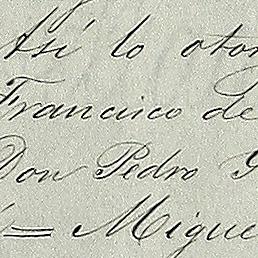 Así lo otor
Francisco de
Don Pedro
= Migue